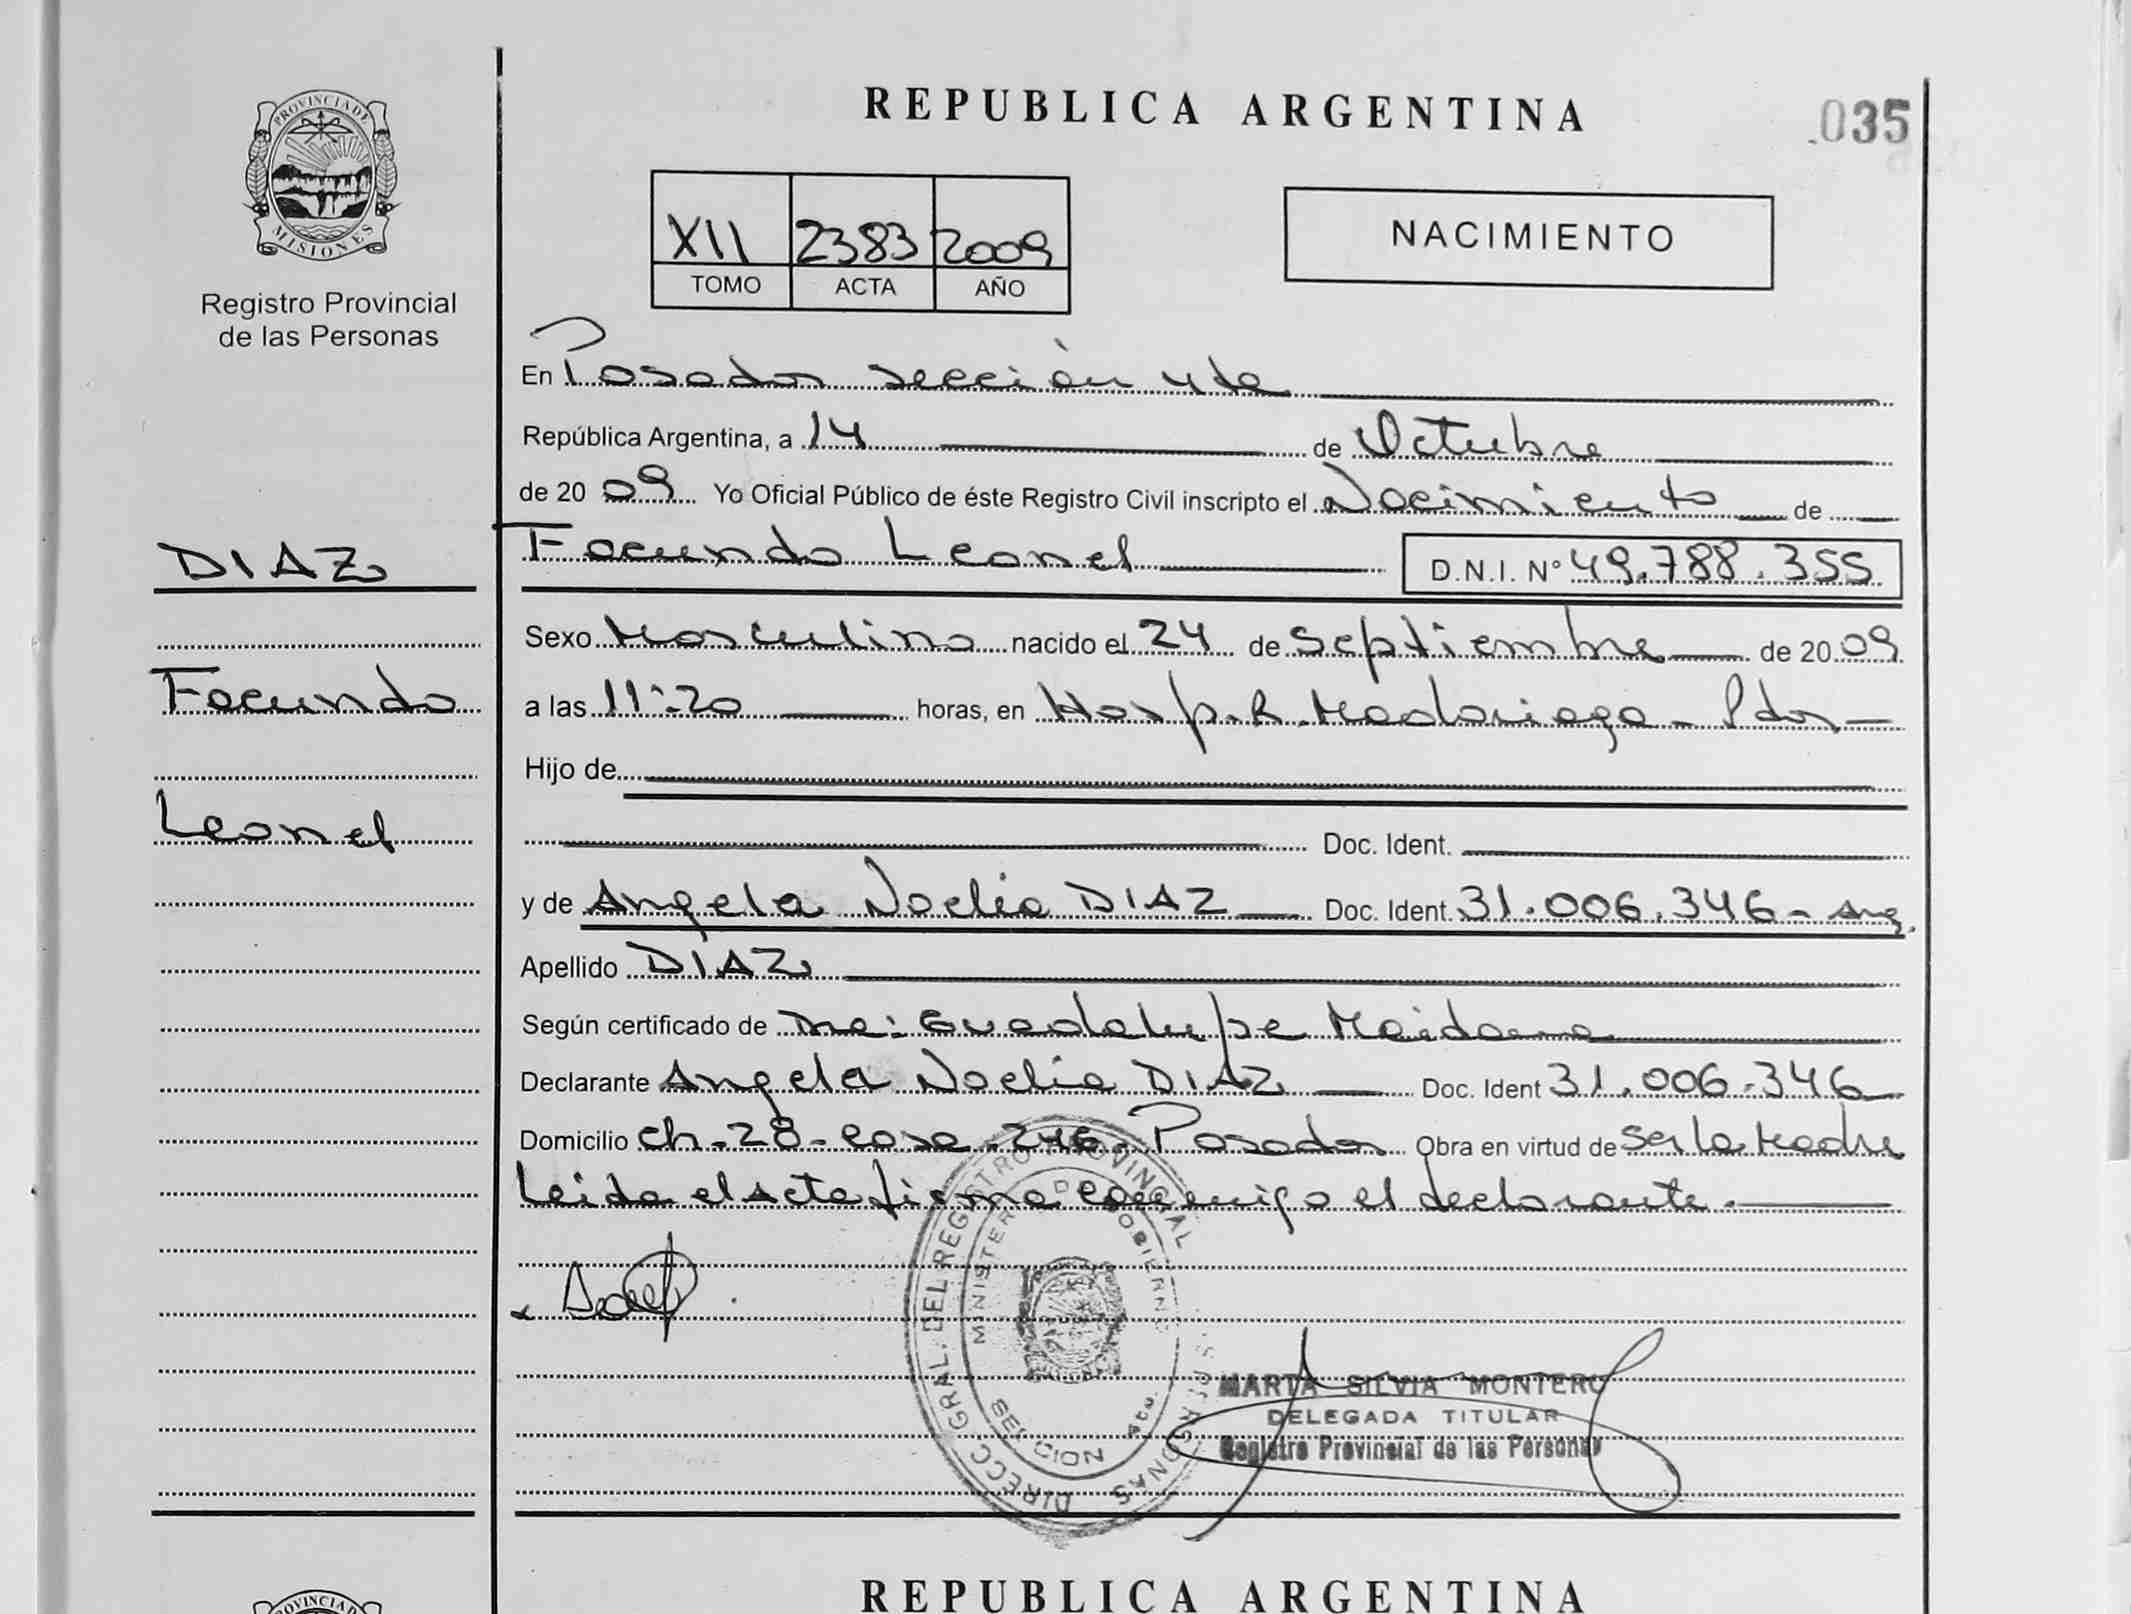 REPUBLICA ARGENTINA
.035
PROVINCIA DE
MISIONES
Registro Provincial
de las Personas
XII 2383 2009
TOMO ACTA AÑO
NACIMIENTO
En Posadas sección 4ta
República Argentina, a 14 de Octubre
de 20 09 Yo Oficial Público de éste Registro Civil inscripto el Nacimiento de
DIAZ
Facundo
Leonel
Facundo Leonel D.N.I. N° 49.788.355
Sexo Masculino nacido el 24 de Septiembre de 20 09
a las 11:20 horas, en Hosp. R. Madariaga - Pdas
Hijo de
Doc. Ident.
y de Angela Noelia DIAZ Doc. Ident. 31.006.346 - Arg.
Apellido DIAZ
Según certificado de Dra: Guadalupe Maidana
Declarante Angela Noelia DIAZ Doc. Ident 31.006.346
Domicilio Ch-28-casa-246-Posadas Obra en virtud de Ser la Madre
Leida el acta firma conmigo el declarante.
DIRECC. GRAL. DEL REGISTRO PROVINCIAL PERSONAS
MINISTERIO DE GOBIERNO
SECCION 4ta.
MARTA SILVIA MONTERO
DELEGADA TITULAR
Registro Provincial de las Personas
PROVINCIA
REPUBLICA ARGENTINA